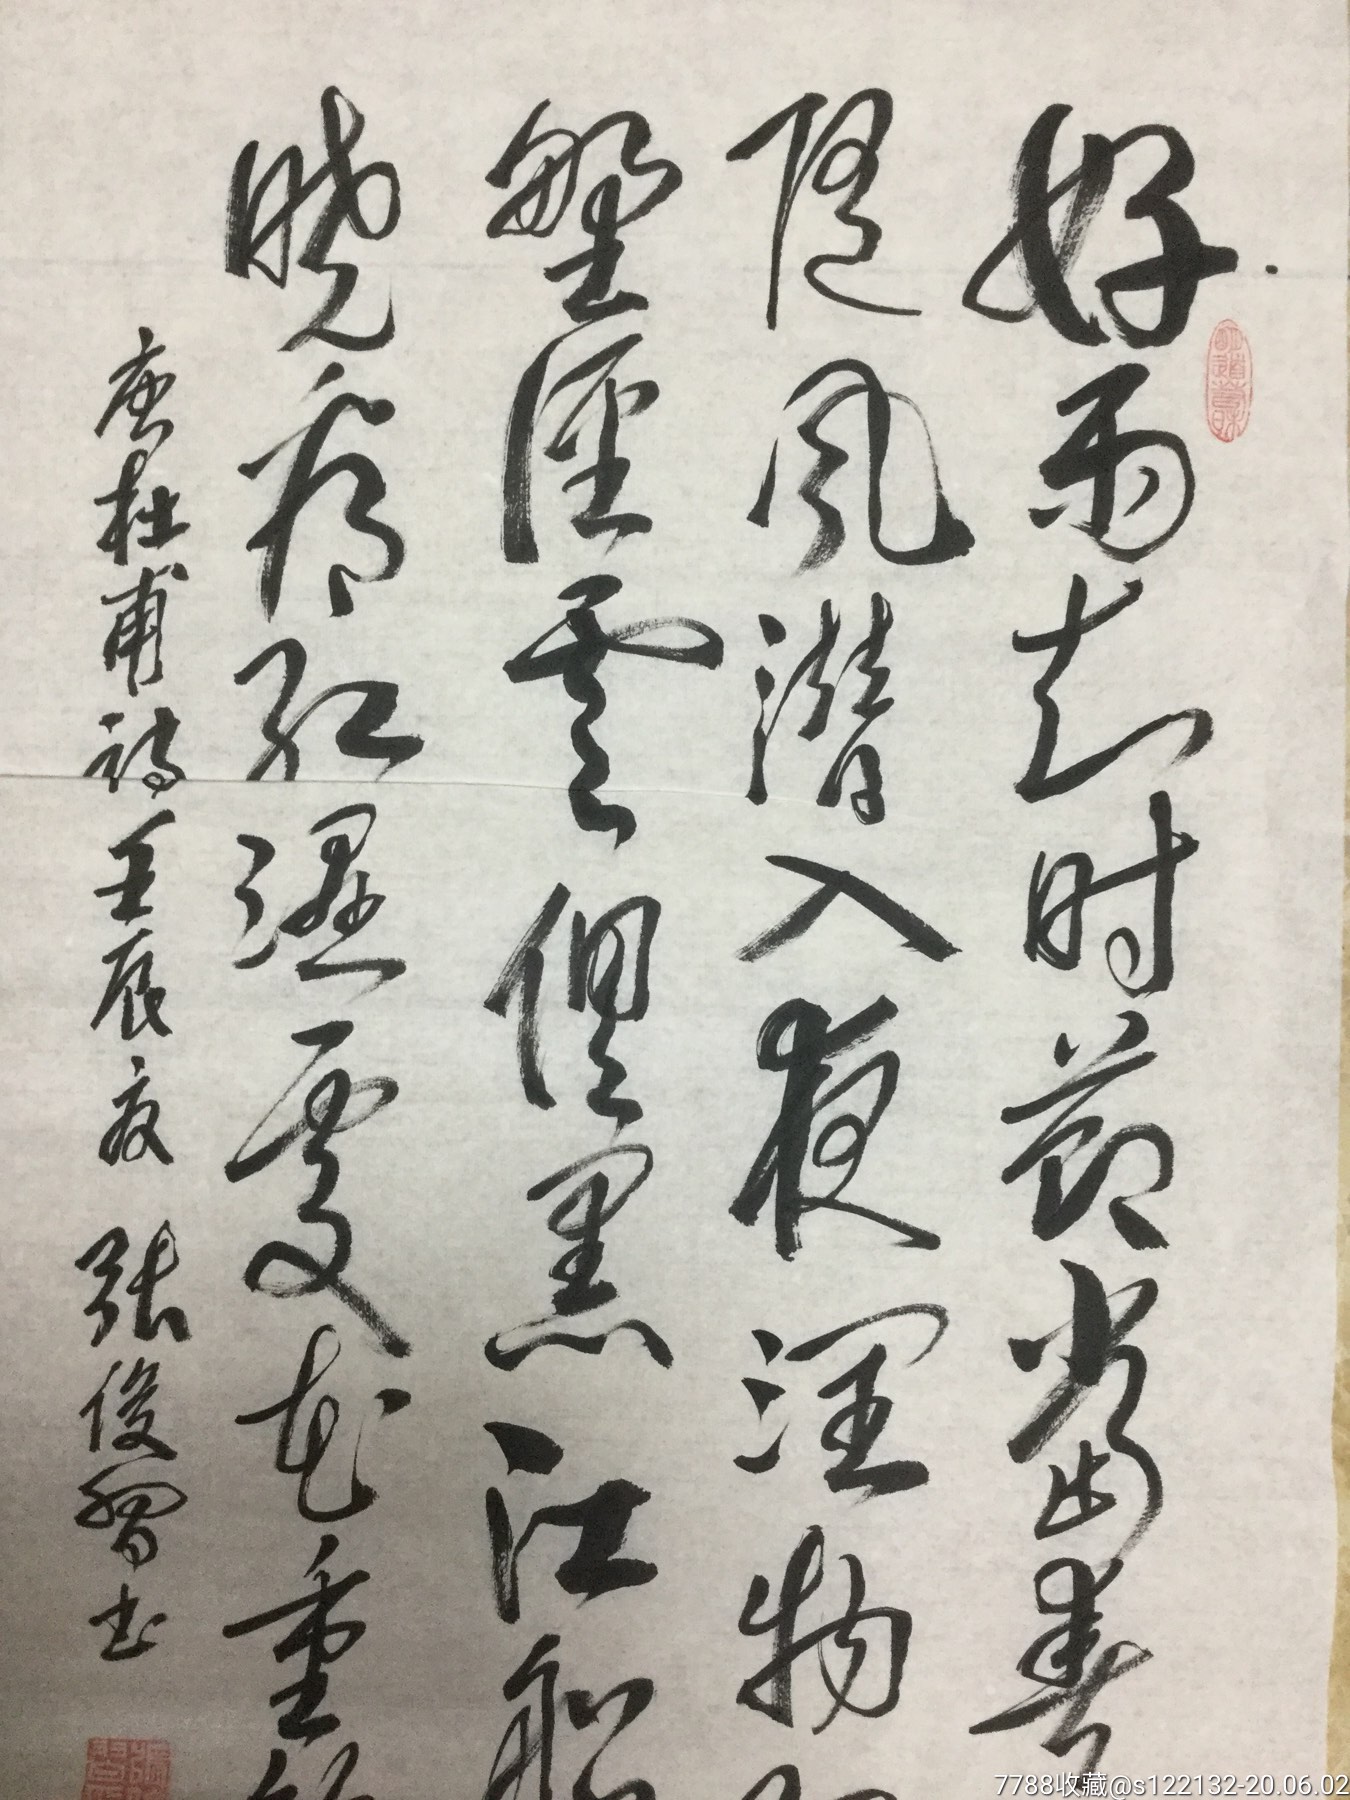 好雨知时節當春
随风潛入夜润物
野徑雲俱黑江船
曉看红濕處花重
唐杜甫诗壬辰夏 张俊书
7788收藏@s122132-20.06.02